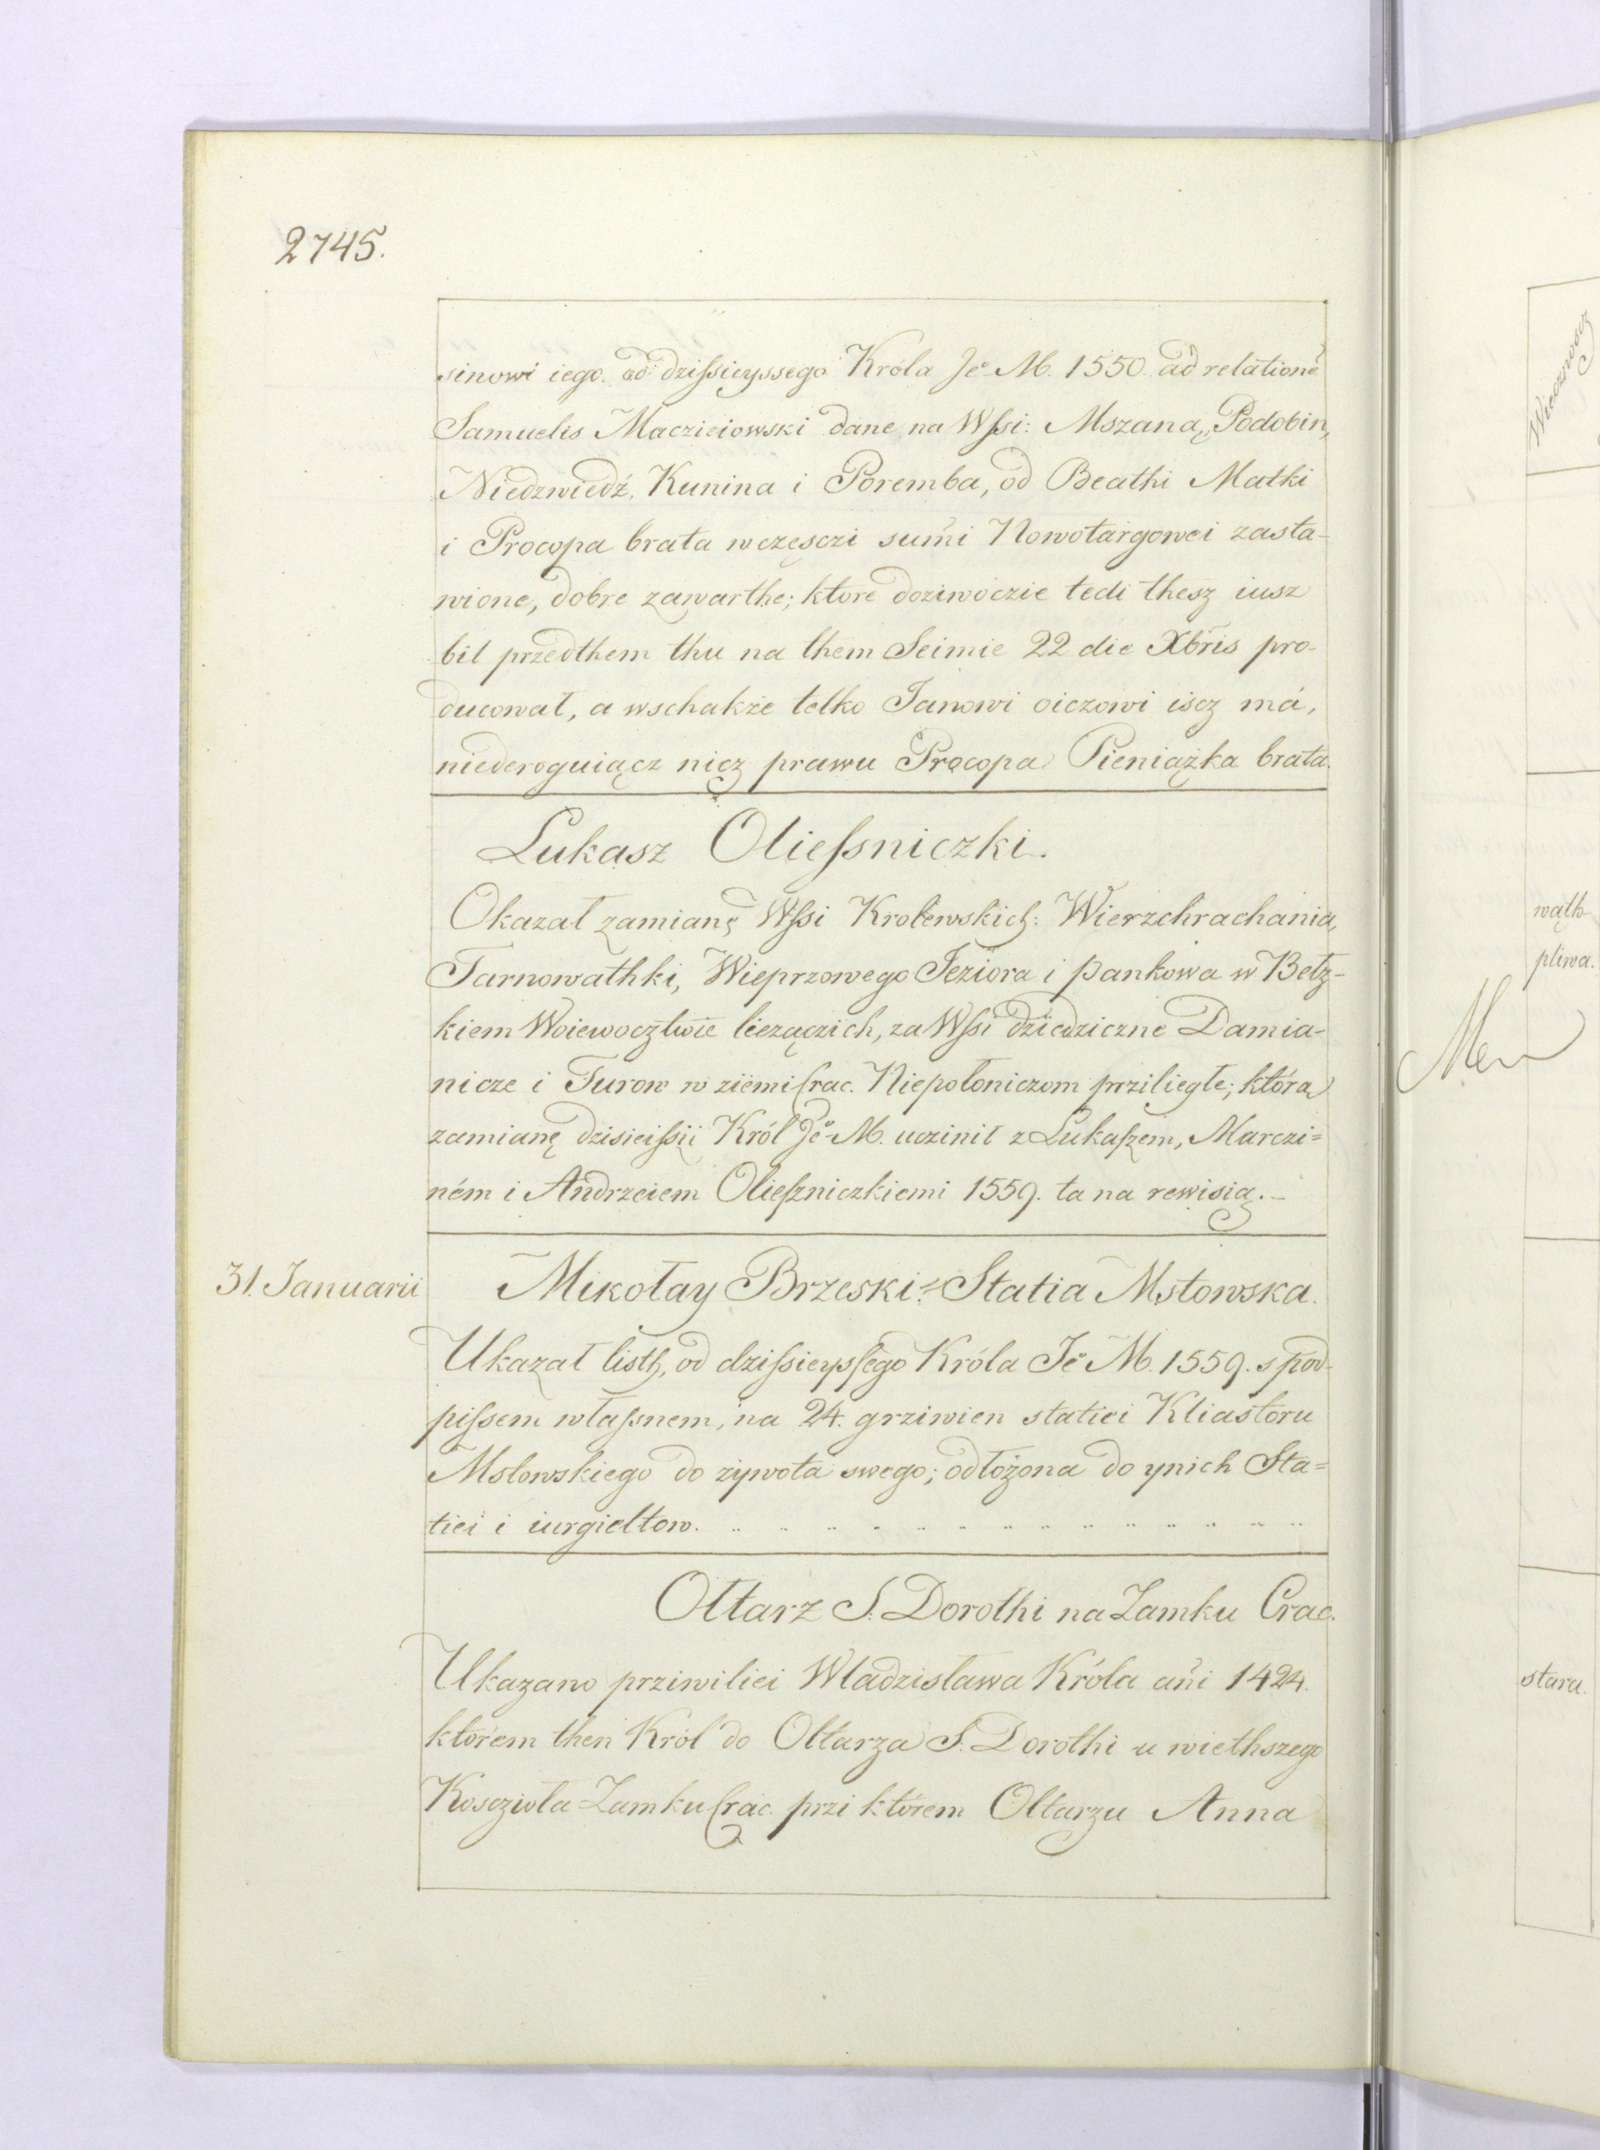 2745.
sinowi iego. od dzissieyssego Króla Je M. 1550. ad relationē
Samuelis Macziciowski dane na Wssi: Mszaną, Podobin,
Niedzwiedź, Kunina i Poremba, od Beathi Matki
i Procopa brata wczęsczi sum̃i Nowotargowei zasta-
wione, dobre zawarthe; ktore doziwoczie tedi thesz iusz
bil przedthem thu na them Seimie 22 die Xbris pro-
ducował, a wschakże telko Janowi oiczowi iscz má,
niederoguiącz nicz prawu Procopa Pieniążka brata.
Lukasz Oliessniczki.
Okazał zamianę Wssi Krolewskich: Wierzchrachania,
Tarnowathki, Wieprzowego Jeziora i Pankowa w Bełz-
kiem Woiewocztwie liezączich, za Wssi dziedziczne Damia-
nicze i Turow w ziemi Crac. Niepołoniczom prziliegłe; którą
zamianę dzisieissii Król Je M. uczinił z Lukaszem, Marczi=
ném i Andrzeiem Olieszniczkiemi 1559. ta na rewisią.
31. Januarii
Mikołay Brzeski: Statia Mstowska.
Ukazał listh, od dzissieyssego Króla Je M. 1559. s pod-
pissem własnem, na 24. grziwien statiei Kliastoru
Mstowskiego do zÿwota swego; odłożona do ynich Sta=
tiei i iurgieltow.
Ołtarz S. Dorothi na Zamku Crac.
Ukazano prziwiliei Wladzisława Króla añi 1424.
którem then Król do Ołtarza S. Dorothi u wiethszego
Koscziola Zamku Crac. przi którem Ołtarzu Anna
Wieczność
wąth-
pliwa.
stara.